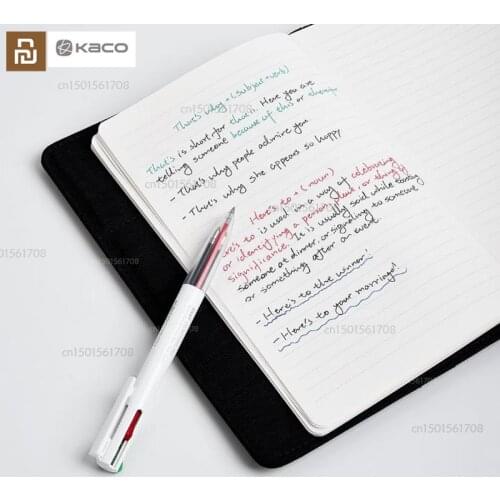 KACO
cn1501561708
That's why + (subject + verb)
That's is short for that is. Here you are
telling someone because of this or
- That's why people admire you
- That's why she appears so happy
Here's to + (noun)
Here's to is used in a way of celebrating
or identifying a person, place, or thing of
significance. It is usually said while
someone at dinner, or signaling to someone
or something after an event.
- Here's to the winner!
- Here's to your marriage!
cn1501561708
cn1501561708
cn1501561708
cn1501561708